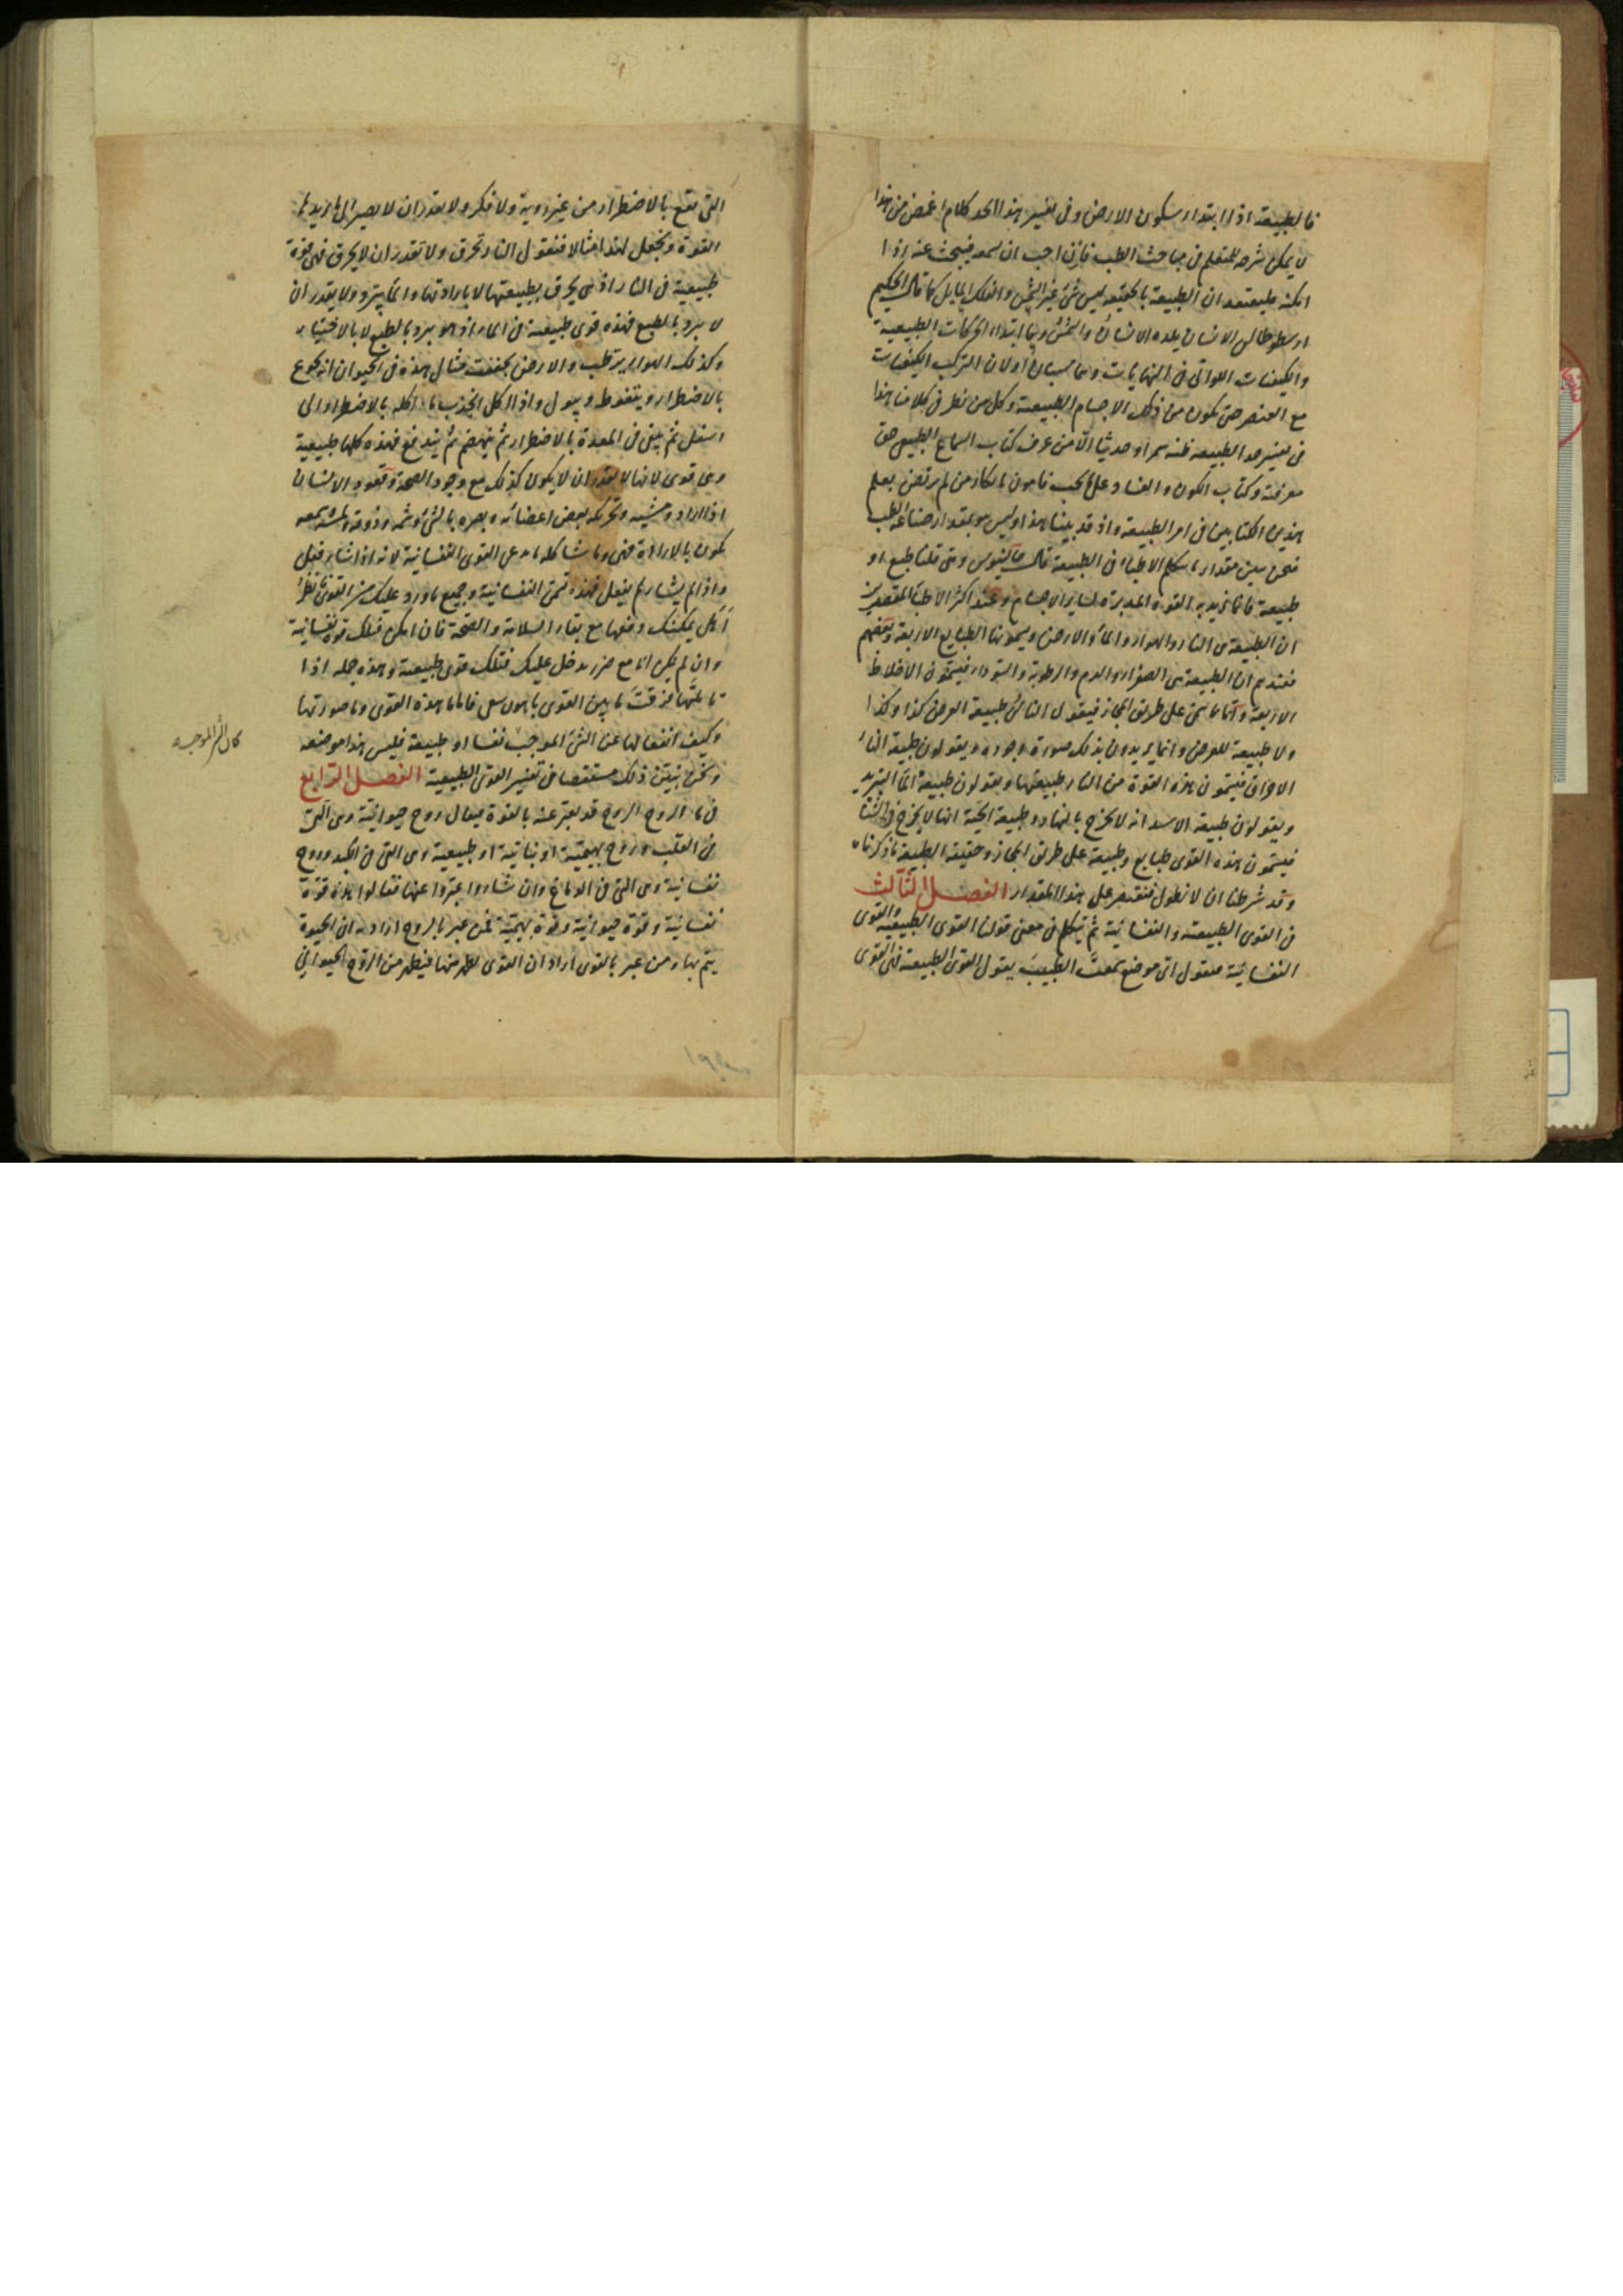 فالطبيعة اذا ابتداء سكون الارض وفى تفسير هذا الحد كلام اغمض من هذا
لا يمكن شرحه للمتعلم فى مباحث الطب فان احب ان يسمعه فيبحث عنه اذا
امكنه فليعتقد ان الطبيعة بالحقيقة ليس شئ غير الشمس والفلك المايل كما قال الحكيم
ارسطوطالس الانسان يلده الانسان والشمس وبها ابتداء الحركات الطبيعية
والكيفيات اللواتى فى النهايات وهما سببان اولان التركب الكيفيات
مع العنصر حتى يكون من ذلك الاجسام الطبيعية وكل من نظر فى كلامنا هذا
فى تفسير حد الطبيعة ظنه سمرا وحديثا الا من عرف كتاب السماع الطبيعى حق
معرفته وكتاب الكون والفساد على ما يجب
هذين الكتابين فى امر الطبيعة واذ قد بينا هذا وليس هو بمقدار صناعة الطب
فنحن نبين مقدار ما يتكلم الاطباء فى الطبيعة قال جالينوس ومتى قلنا طبع او
طبيعة فانما نريد به القوة المدبرة لساير الاجسام وعند اكثر الاطباء المتقدمين
ان الطبيعة هى النار والهواء والماء والارض ويسمونها الطبايع الاربعة وبعضهم
فعندهم ان الطبيعة هى الصفراء والدم والرطوبة والسوداء فيسمون الاخلاط
الاربعة وانما تسمى على طريق المجاز فيقول القائل طبيعة العرض كذا وكذا
ولا طبيعة للعرض وانما يريدون بذلك صورة وجوده ويقولون طبيعة النار
الاحراق فيسمون هذه القوة من النار طبيعتها ويقولون طبيعة الماء التبريد
ويقولون طبيعة الاسد انه لا يخرج بالنهار وطبيعة الحية انها لا يخرج فى الشتاء
فيسمون هذه القوى طبايع وطبيعة على طريق المجاز وحقيقة الطبيعة ما ذكرناه
وقد شرطنا ان لا نطول فنقتصر على هذا المقدار الفصل الثالث
فى القوى الطبيعية والنفسانية ثم نتكلم فى معنى قولنا القوى الطبيعية والقوى
النفسانية فنقول اى موضع سمعت الطبيب يقول القوى الطبيعية فهى القوى
التى تقع بالاضطرار من غير روية ولا فكر ولا يقدر ان لا يصير الى ما يريد
القوة ونجعل لهذا مثالا فنقول النار تحرق ولا تقدر ان لا تحرق فهى قوة
طبيعية فى النار اذ هى تحرق بطبيعتها لا بارادتها والماء يبرد ولا يقدر ان
لا يبرد بالطبع فهذه قوى طبيعية فى الماء اذ هو يبرد بالطبع لا بالاختيار
وكذلك الهواء يرطب والارض يجفف مثال هذه فى الحيوان انه يجوع
بالاضطرار ويتغوط ويبول واذا اكل انجذب ما اكله بالاضطرار الى
اسفل ثم يبقى فى المعدة بالاضطرار ثم ينهضم ثم يندفع فهذه كلها طبيعية
وهى قوى لانها لا يقدر ان لا يكون كذلك مع وجود الصحة وقعود الانسان
اذا اراد ومشيه وتحريكه بعض اعضائه وبصره بالشئ وشمه وذوقه ولمسه وسمعه
يكون بالارادة فهى وما شاكله تدعى القوى النفسانية لانه اذا شاء فعل
واذا لم يشاء لم يفعل فهذه تسمى النفسانية وجميع ما ورد عليك من القوى فانظر
أكل يمكنك دفعها مع بقاء السلامة والصحة فان امكن فتلك قوة نفسانية
وان لم يكن الا مع ضرر يدخل عليك فتلك قوى طبيعية وهذه جملة اذا
تأملتها فرقت ما بين القوى باهون سعى فاما ما هذه القوى وما صورتها
وكيف انفعالها عن الشئ الموجب نفسا او طبيعة فليس هذا موضعه
ونحن نبين ذلك مستقصا فى تفسير القوى الطبيعية الفصل الرابع
فى ما الروح الروح قد يعبر عنه بالقوة فيقال روح حيوانية وهى التى
فى القلب وروح بهيمية او نباتية او طبيعية وهى التى فى الكبد وروح
نفسانية وهى التى فى الدماغ وان شاءوا عبروا عنها فقالوا هذه قوة
نفسانية وقوة حيوانية وقوة بهيمية فمن عبر بالروح اراد به ان الحيوة
يتم بها ومن عبر بالقوى اراد ان القوى تظهر منها فيظهر من الروح الحيوانى